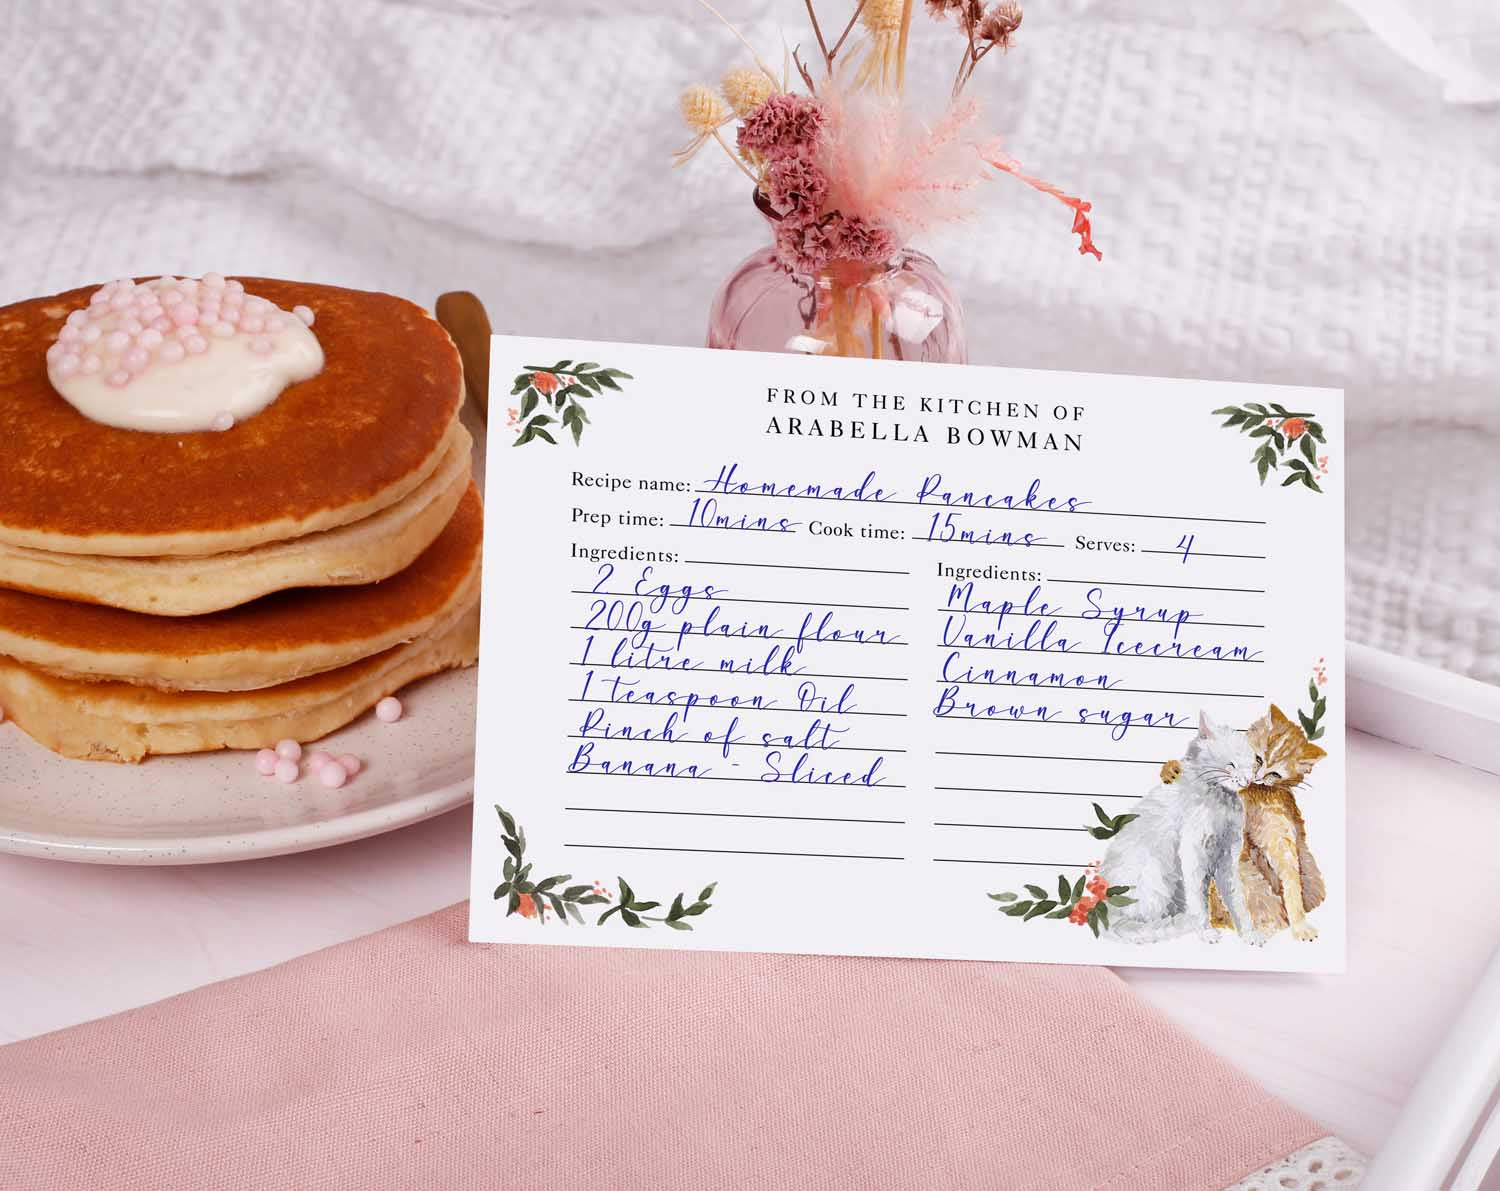 FROM THE KITCHEN OF
ARABELLA BOWMAN
Recipe name: Homemade Pancakes
Prep time: 10mins Cook time: 15mins Serves: 4
Ingredients:
2 Eggs
200g plain flour
1 litre milk
1 teaspoon Oil
Pinch of salt
Banana - Sliced
Ingredients:
Maple Syrup
Vanilla Icecream
Cinnamon
Brown sugar